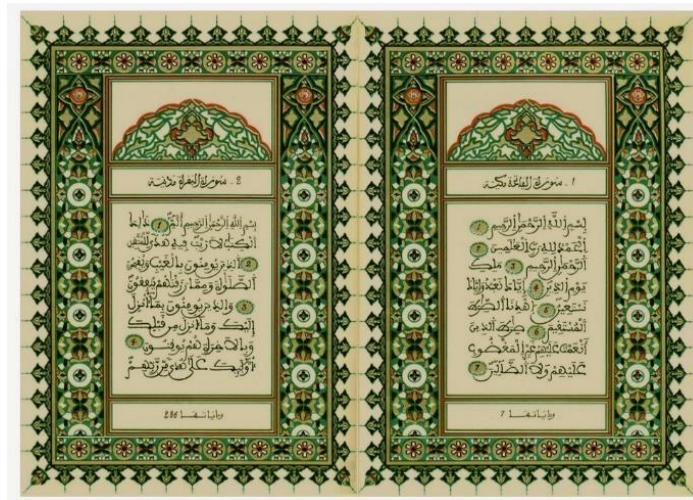 1 - سورة الفاتحة مكية
بسم الله الرحمن الرحيم 1
الحمد لله رب العالمين 2
الرحمن الرحيم 3 ملك
يوم الدين 4 إياك نعبد وإياك
نستعين 5 اهدنا الصراط
المستقيم 6 صراط الذين
أنعمت عليهم غير المغضوب
عليهم ولا الضالين 7
وءاياتها 7
2 - سورة البقرة مدنية
بسم الله الرحمن الرحيم الم 1 ذلك
الكتب لا ريب فيه هدى للمتقين
2 الذين يومنون بالغيب ويقيمون
الصلوة ومما رزقنهم ينفقون
3 والذين يومنون بما أنزل
إليك وما أنزل من قبلك
وبالاخرة هم يوقنون 4
أولئك على هدى من ربهم
وءاياتها 286